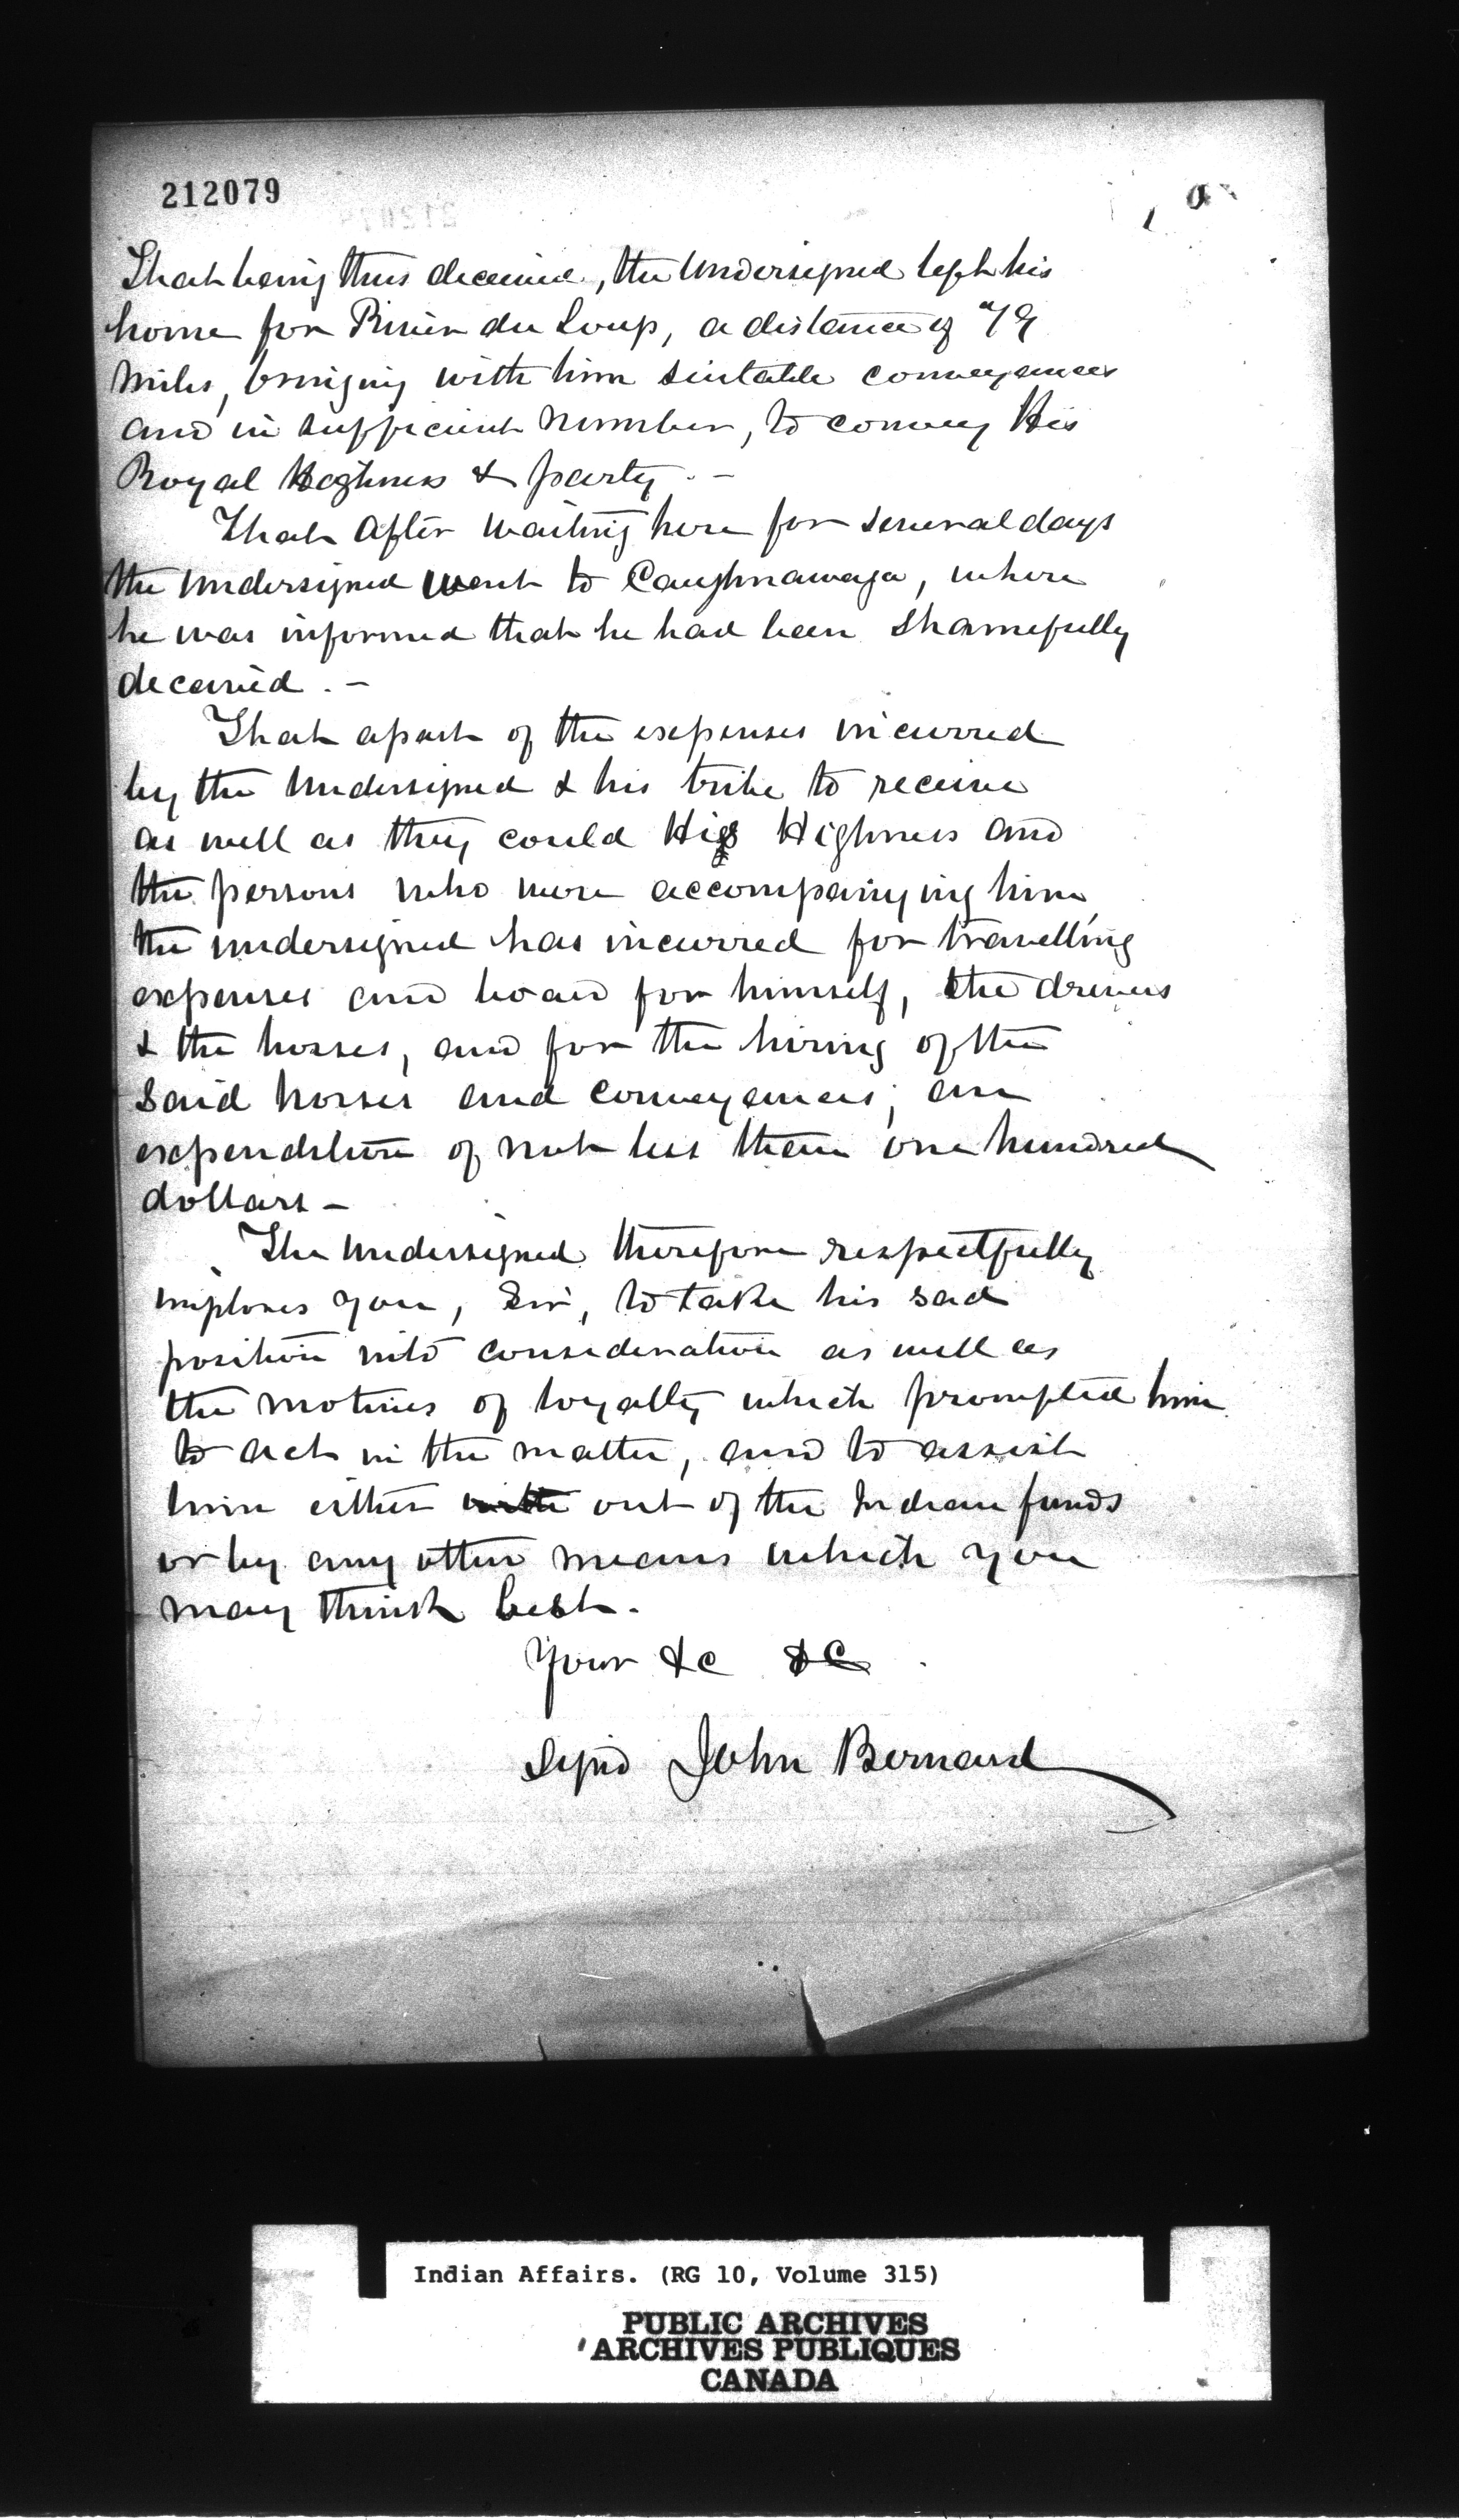 212079
That being thus deceived, the Undersigned left his
home for Rivière du Loup, a distance of 79
miles, bringing with him suitable conveyances
and in sufficient number, to convey His
Royal Highness & party. -
That after waiting here for several days
the undersigned went to Caughnawaga, where
he was informed that he had been shamefully
deceived. -
That apart of the expenses incurred
by the Undersigned & his tribe to receive
as well as they could His Highness and
the persons who were accompanying him,
the undersigned has incurred for travelling
expenses and board for himself, the drivers
& the horses, and for the hiring of the
said horses and conveyances, an
expenditure of not less than one hundred
dollars -
The Undersigned therefore respectfully
implores you, Sir, to take his sad
position into consideration as well as
the motives of loyalty which prompted him
to act in the matter, and to assist
him either out of the Indian funds
or by any other means which you
may think best.
Your &c &c
Signd John Bernard
Indian Affairs. (RG 10, Volume 315)
PUBLIC ARCHIVES
ARCHIVES PUBLIQUES
CANADA